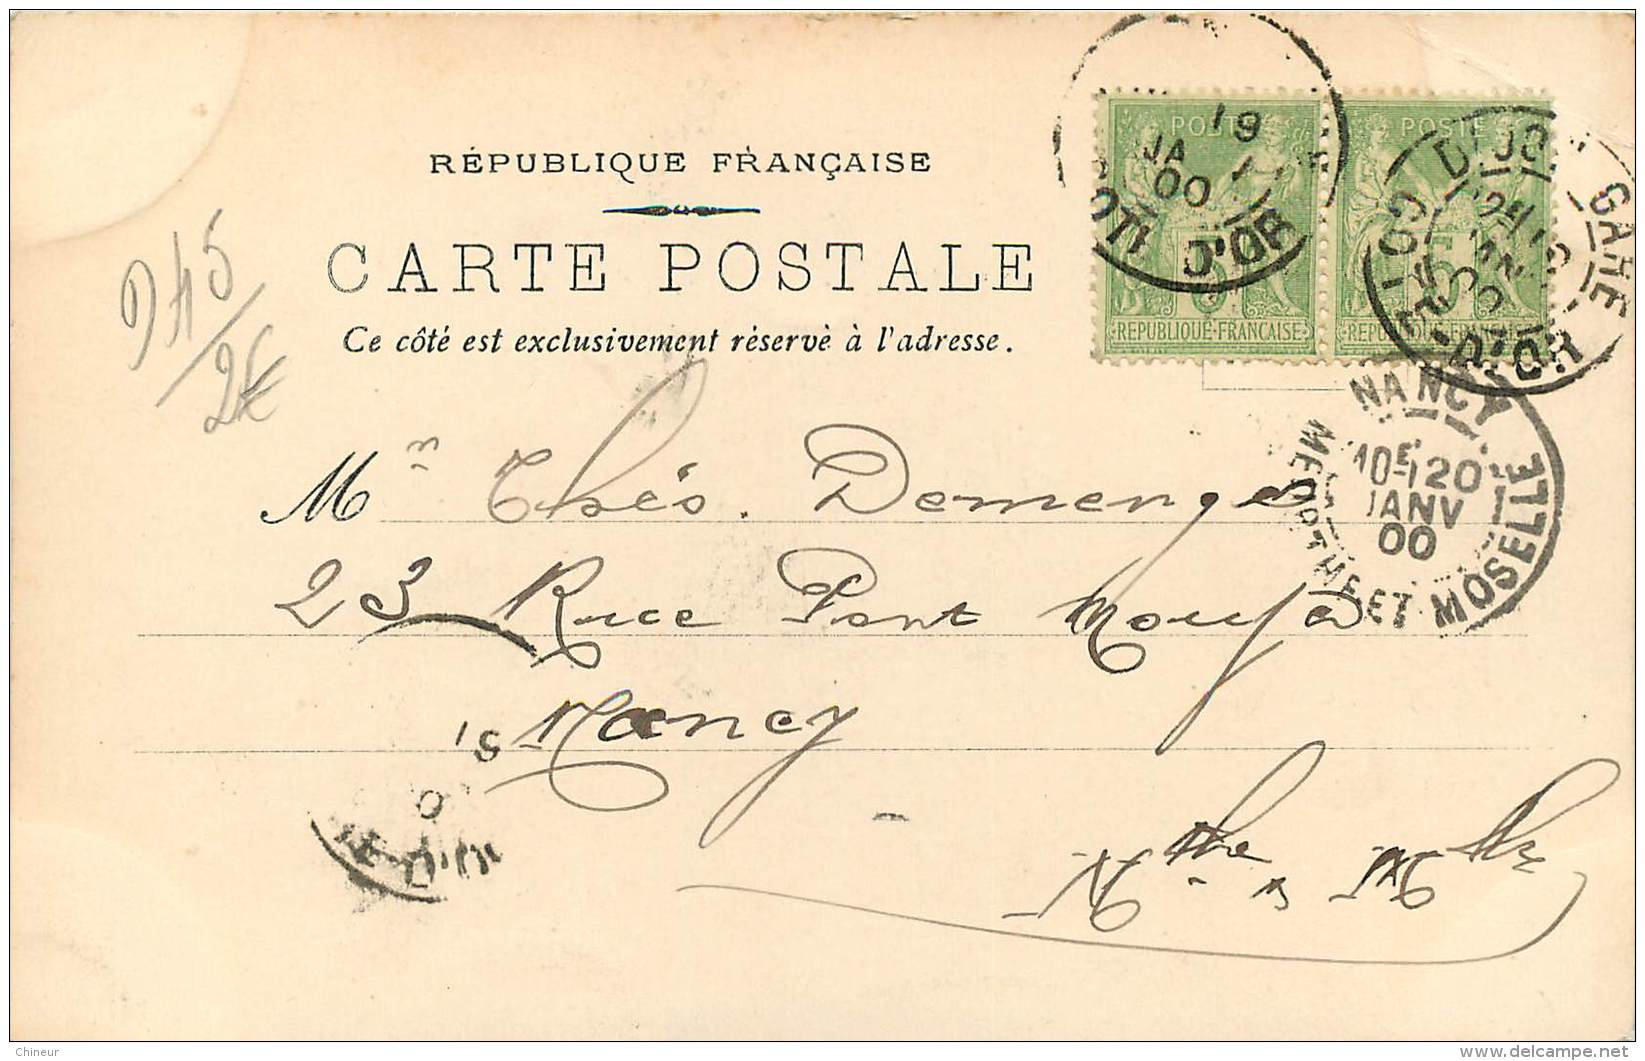 RÉPUBLIQUE FRANÇAISE
CARTE POSTALE
Ce côté est exclusivement réservé à l'adresse.
945
2€
POSTE
5
REPUBLIQUE FRANÇAISE
POSTE
5
REPUBLIQUE FRANÇAISE
19
JA
00
D'OR
DIJON GARE
D'OR
NANCY
10E 20
JANV
00
MEURTHE ET MOSELLE
Mr Thés. Demenge
23 Rue Pont Mouja
Nancy
Chineur
www.delcampe.net